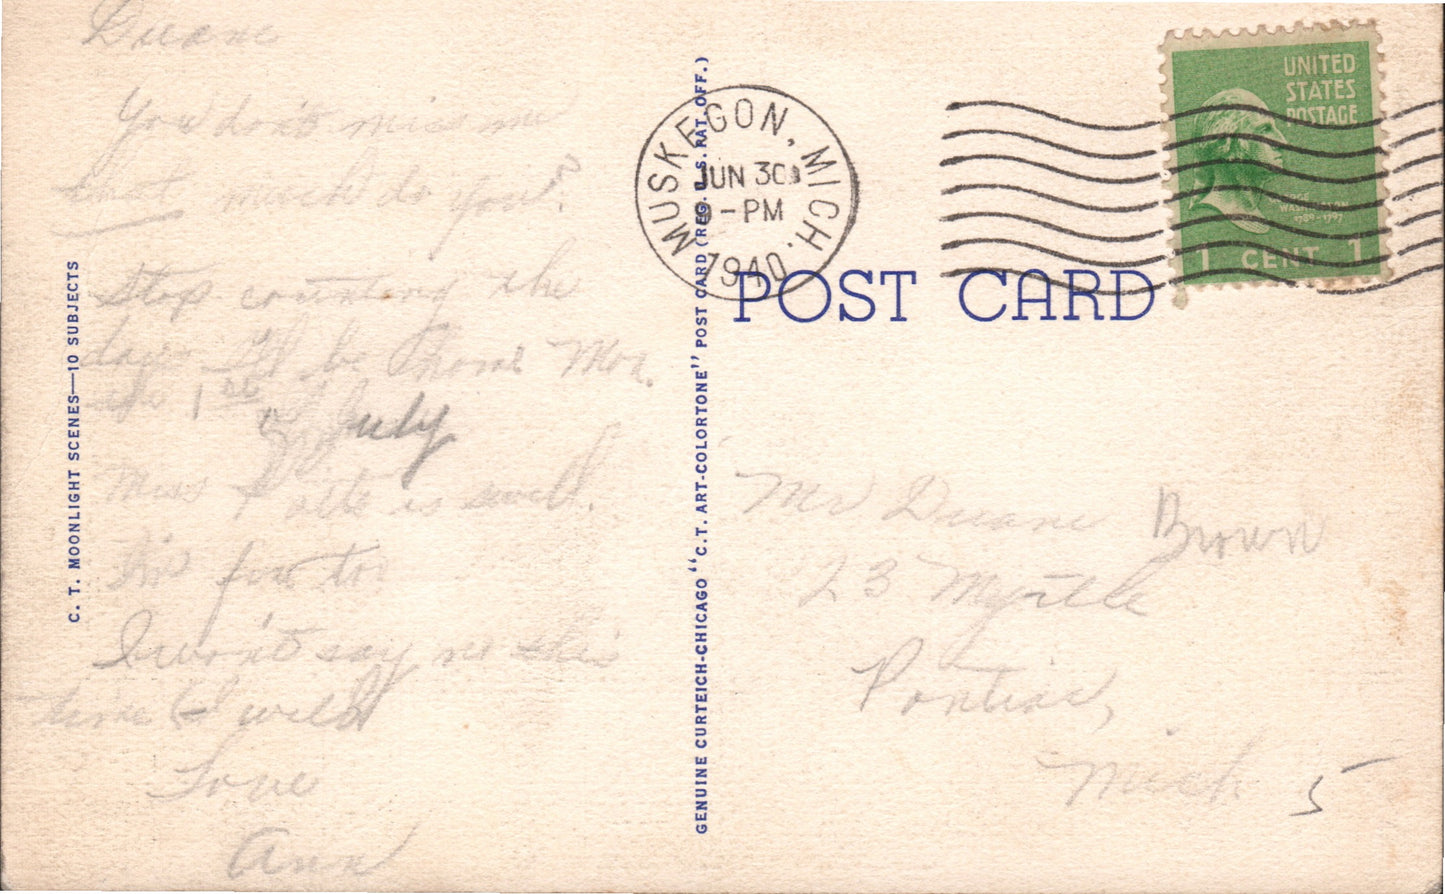 Duane
You don't miss me
that much do you?
Stop counting the
days I'll be home Mon.
the 1st of July
Miss Potte is swell.
I'm
I won't say no this
time I will
Love
Ann
C. T. MOONLIGHT SCENES—10 SUBJECTS
GENUINE CURTEICH-CHICAGO "C. T. ART-COLORTONE" POST CARD (REG. U. S. PAT. OFF.)
MUSKEGON, MICH.
JUN 30
9-PM
1940
UNITED
STATES
POSTAGE
WASHINGTON
1789-1797
1 CENT 1
POST CARD
Mr Duane Brown
23 Myrtle
Pontiac,
Mich.
5